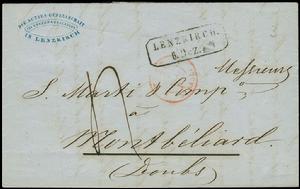 DIE ACTIEN GESELLSCHAFT
IN LENZKIRCH
LENZKIRCH.
Messieurs
S. Marti & Comp
à
Montbéliard
Doubs